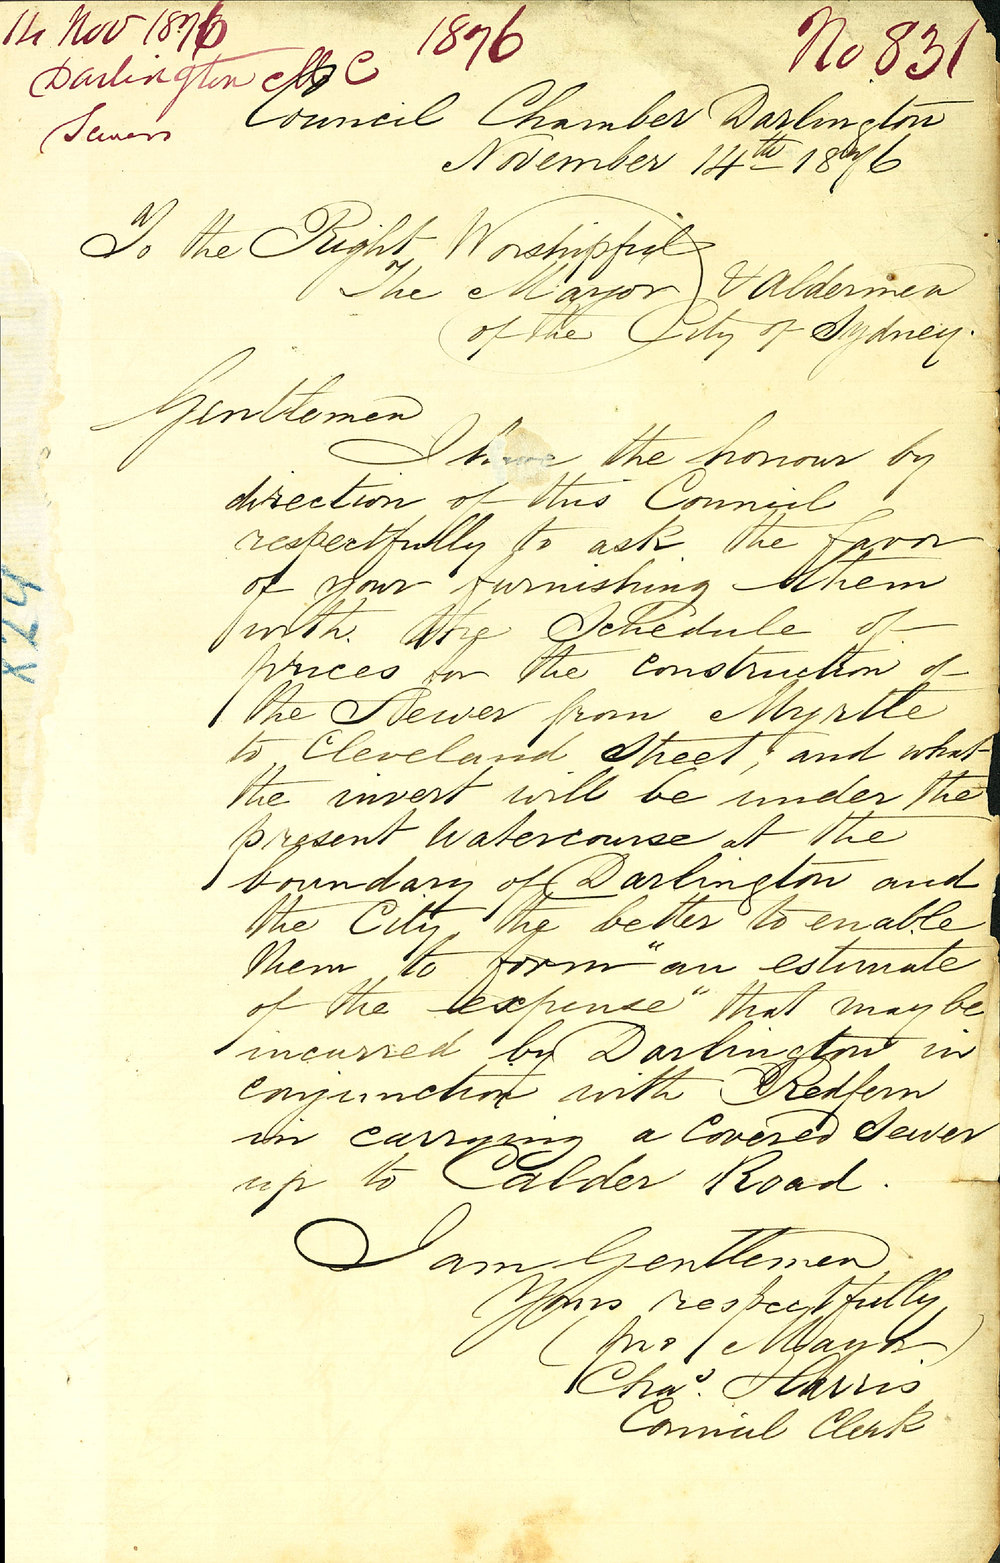 14 Nov 1876
1876
No 831
Darlington M C
Sewers
Council Chamber Darlington
November 14th 1876
To the Right Worshipful
The Mayor & Aldermen
of the City of Sydney.
Gentlemen
I have the honour by
direction of this Council
respectfully to ask the favor
of your furnishing them
with the Schedule of
prices for the construction of
the Sewer from Myrtle
to Cleveland Street, and what
the invert will be under the
present Watercourse at the
boundary of Darlington and
the City, the better to enable
them to form "an estimate
of the expense" that may be
incurred by Darlington in
conjunction with Redfern
in carrying a Covered Sewer
up to Calder Road.
I am Gentlemen
Yours respectfully
(pro Mayor)
Chas. Harris
Council Clerk
824